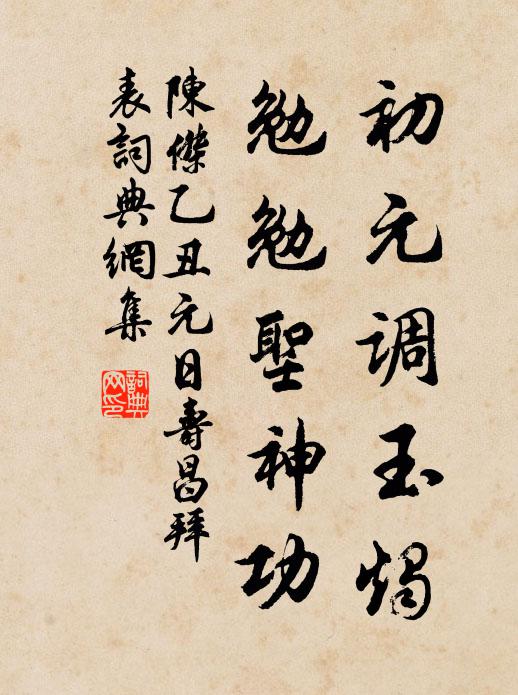 初元调玉燭
勉勉聖神功
陳傑乙丑元日壽昌拜
表詞典網集
詞典網印